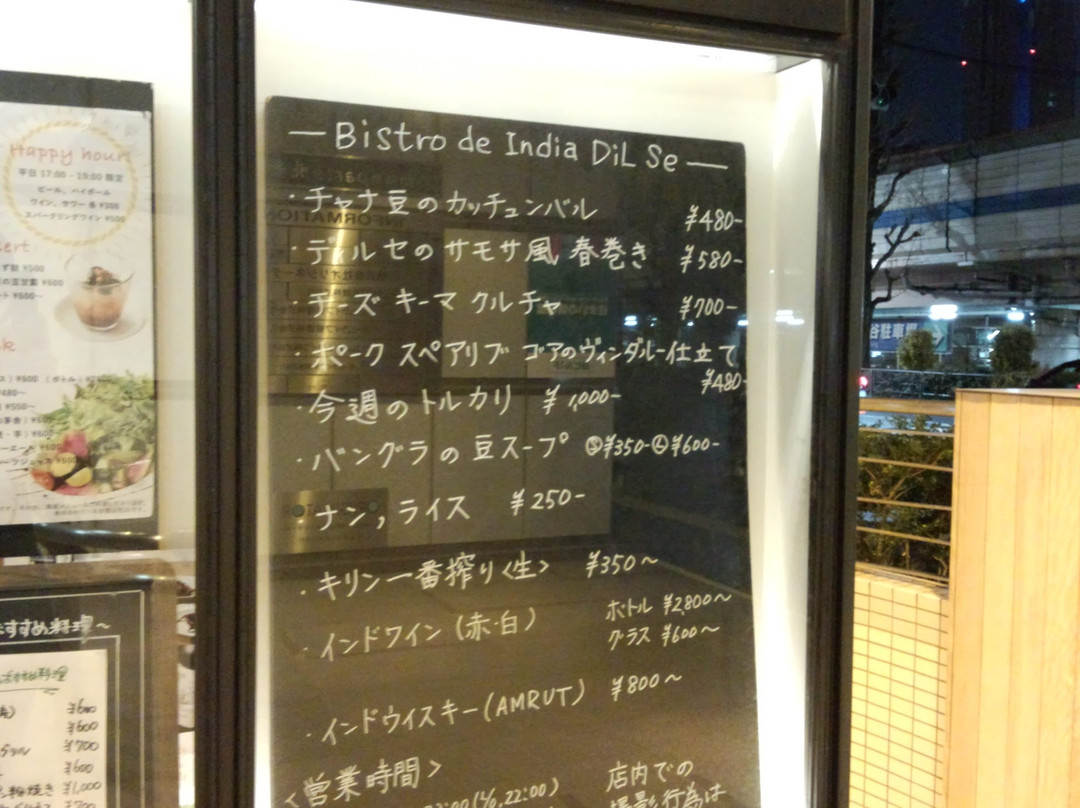 Happy hour
平日 17:00 - 19:00 限定
ビール、ハイボール
ワイン、サワー 各 ¥300
スパークリングワイン ¥500
— Bistro de India DiL Se —
・チャナ豆のカッチュンバル ¥480-
・ディルセのサモサ風 春巻き ¥580-
・チーズ キーマ クルチャ ¥700-
・ポーク スペアリブ ゴアのヴィンダルー仕立て
¥480-
・今週のトルカリ ¥1,000-
・バングラの豆スープ Ⓢ¥350-Ⓛ¥600-
・ナン, ライス ¥250-
・キリン一番搾り<生> ¥350〜
・インドワイン (赤・白) ボトル ¥2,800〜
グラス ¥600〜
・インドウイスキー (AMRUT) ¥800〜
<営業時間>
店内での
撮影行為は
おすすめ料理〜
¥600
¥700
¥600
¥1,000